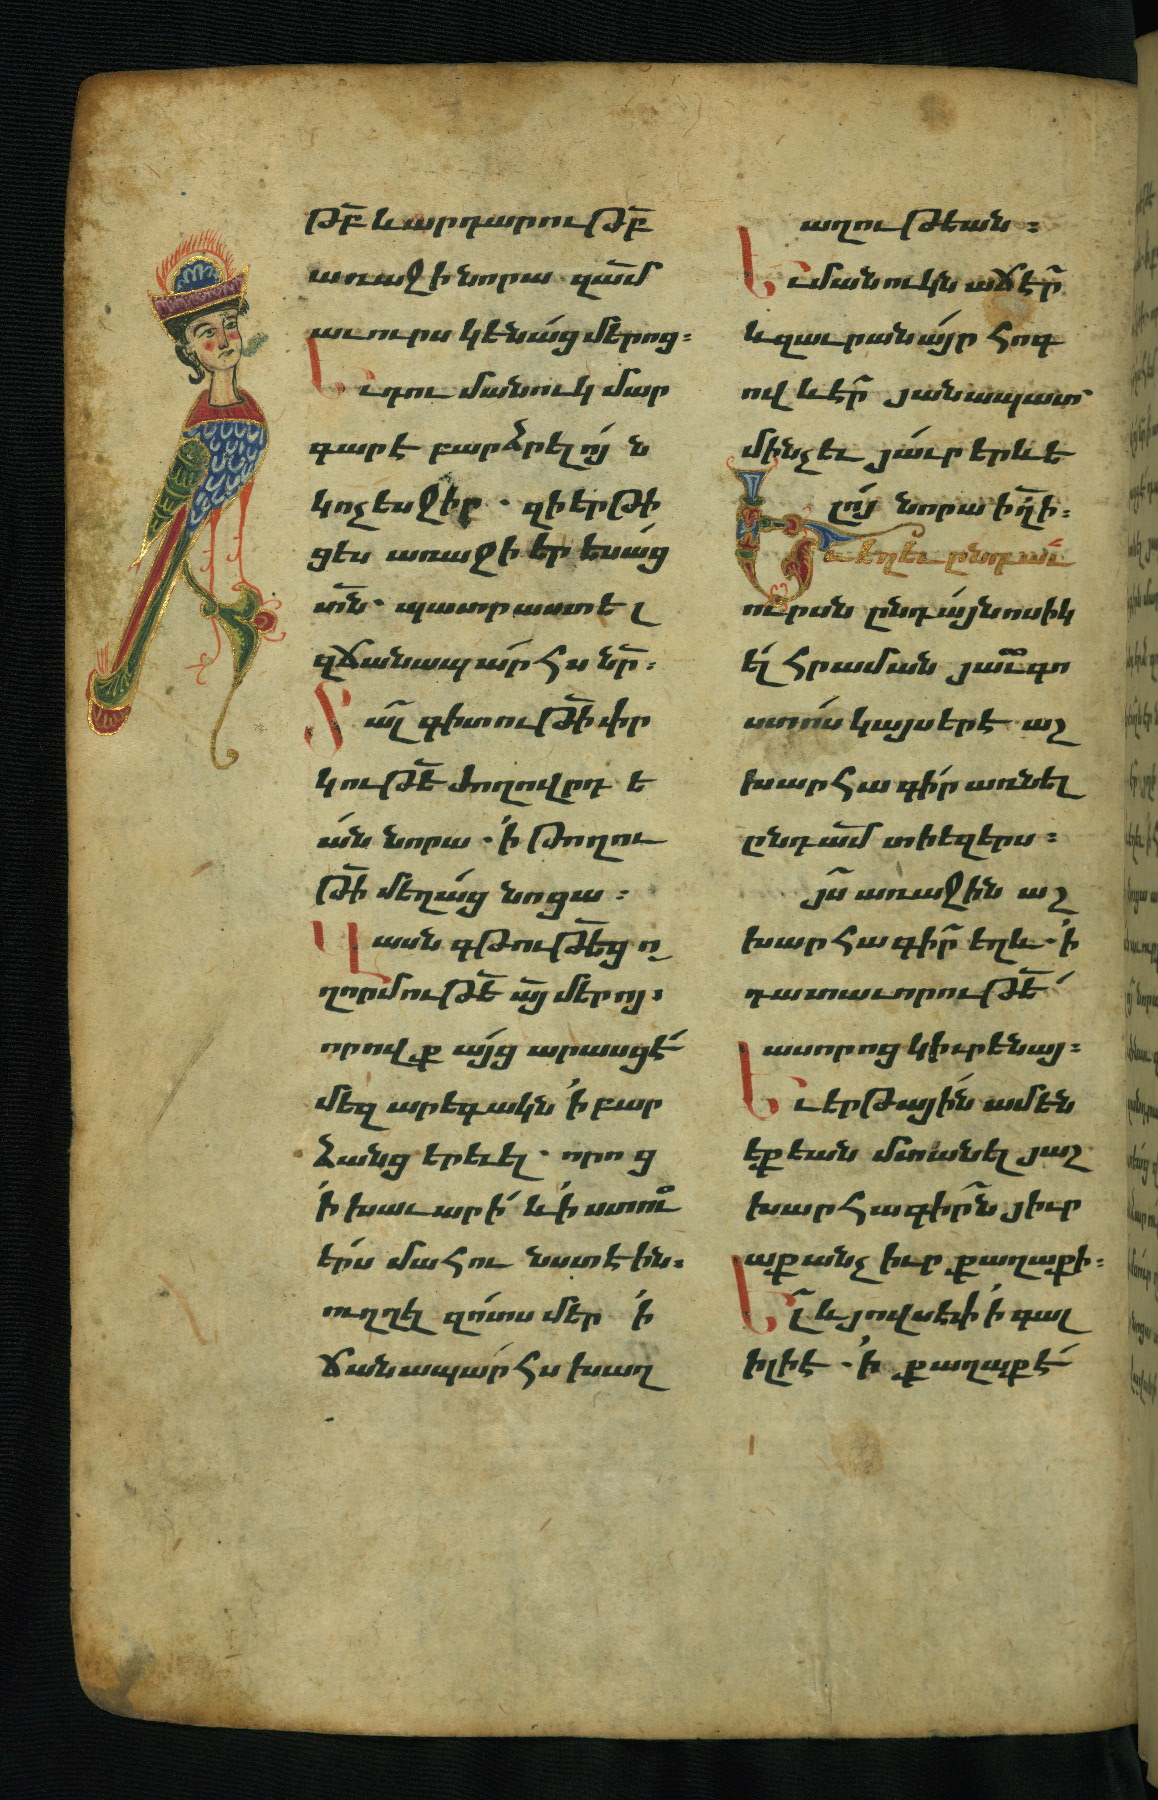 թբ և արդարութբ
առաջի նորա զամ
աւուրս կենաց մերոց։
Եւ դու մանուկ մար
գարէ բարձրելոյ ն
կոչեսջիր · զի երթի
ցես առաջի երեսաց
տն · պատրաստել
զճանապարհս նր։
Տալ գիտութի փր
կութե ժողովրդ ե
ան նորա · ի թողու
թի մեղաց նոցա։
Վասն գթութեց ո
ղորմութե այ մերոյ։
որովք այց արասցէ
մեզ արեգակն ի բար
ձանց երեւել · որոց
ի խաւարի և ի ստու
երս մահու նստէին։
ուղղել զոտս մեր ի
ճանապարհս խաղ
աղութեան։
Եւ մանուկն աճէր
և զաւրանայր հոգ
ով և էր յանապատ
մինչեւ յաւր երևե
լոյ նորա ի իլի։
Եւ եղեւ ընդ աւ
ուրսն ընդ այնոսիկ
ել հրաման յաւգո
ստոս կայսերէ աշ
խարհագիր առնել
ընդ ամ տիեզերս։
յս առաջին աշ
խարհագիր եղև · ի
դատաւորութե
ասորոց կիւրենայ։
Եւ երթային ամեն
եքեան մտանել յաշ
խարհագիրն յիւր
աքանչիւր քաղաքի։
Ել և յովսէփ ի գալ
իլիէ · ի քաղաքէ